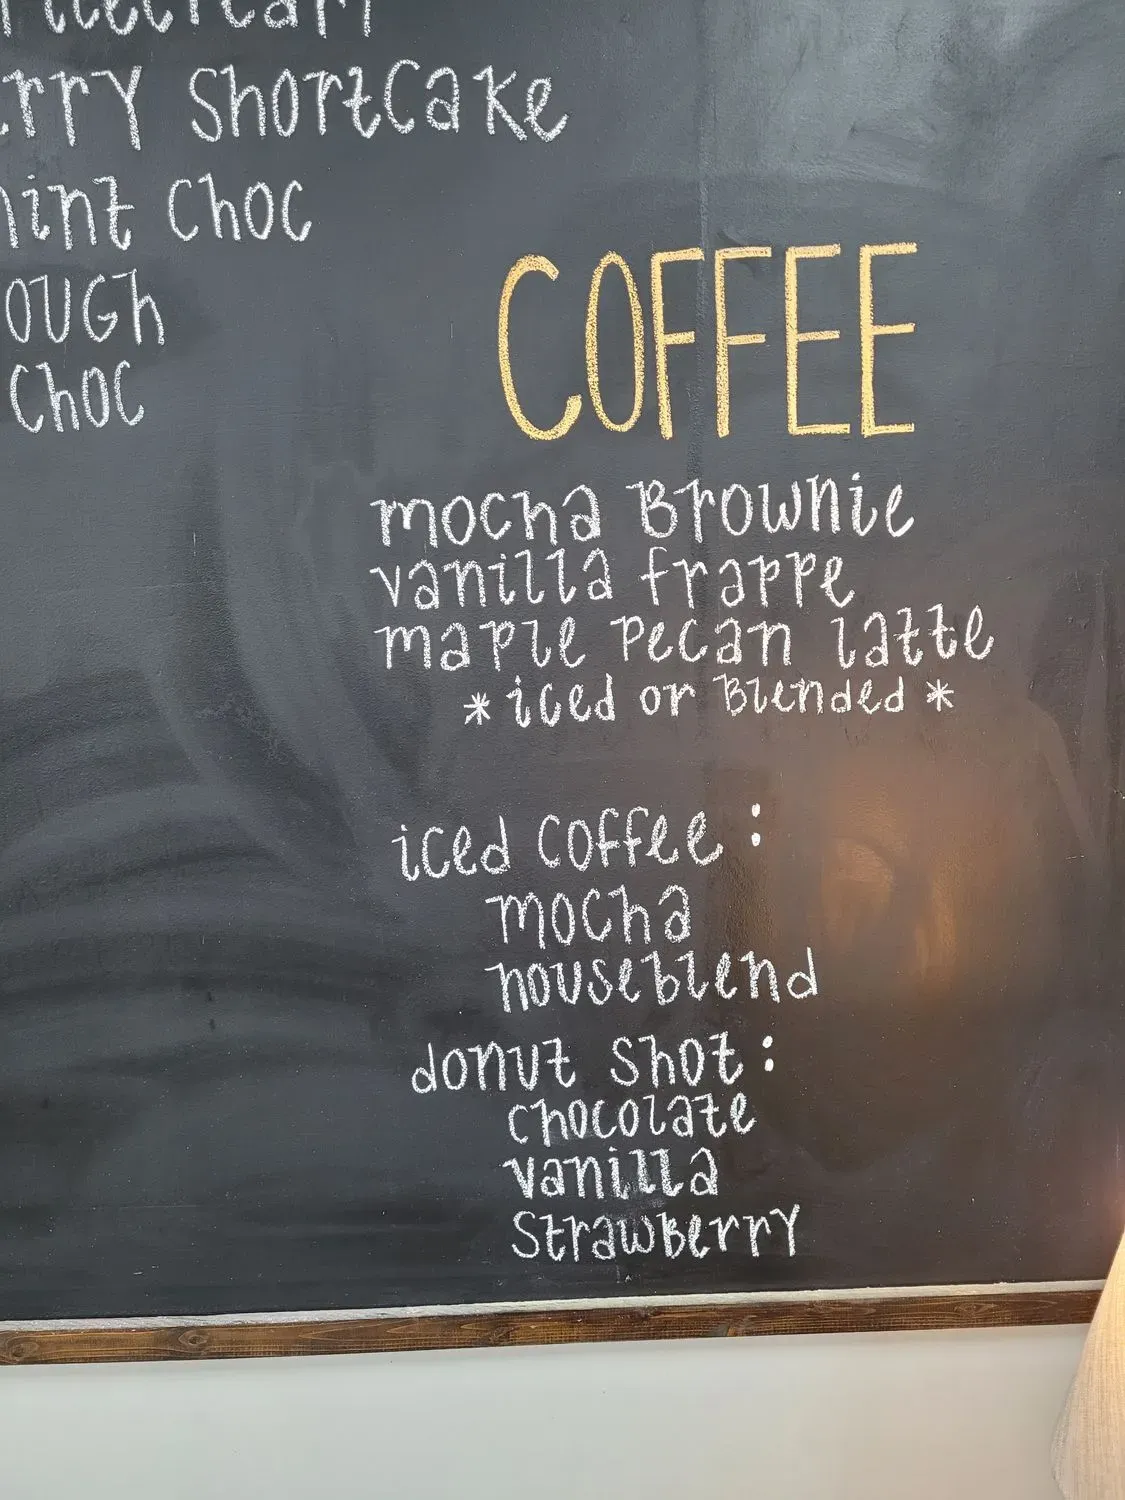 shortcake
choc
choc
COFFEE
mocha Brownie
vanilla frappe
maple pecan latte
*iced or Blended*
iced coffee:
mocha
houseblend
donut shot:
chocolate
vanilla
strawberry